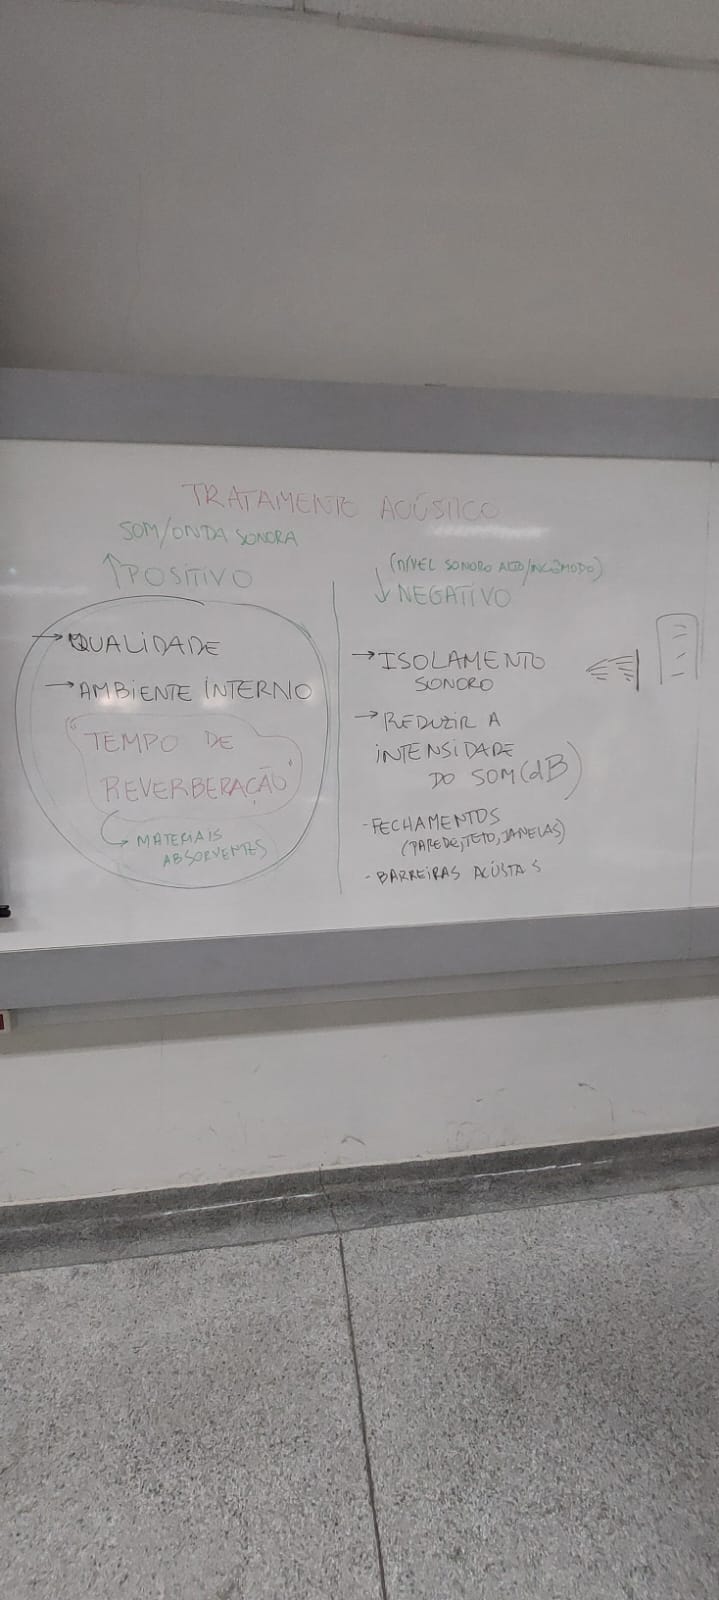 TRATAMENTO ACÚSTICO
SOM/ONDA SONORA
↑POSITIVO
→QUALIDADE
→AMBIENTE INTERNO
"TEMPO DE
REVERBERAÇÃO"
→ MATERIAIS
ABSORVENTES
(NÍVEL SONORO ALTO/INCÔMODO)
↓NEGATIVO
→ISOLAMENTO
SONORO
→REDUZIR A
INTENSIDADE
DO SOM (dB)
-FECHAMENTOS
(PAREDE, TETO, JANELAS)
-BARREIRAS ACÚSTAS